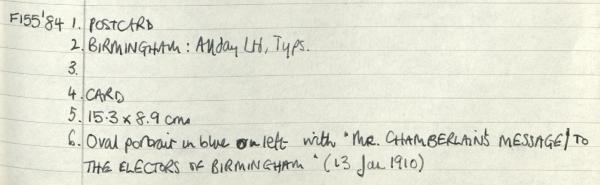 F155'84 1. POSTCARD
2. BIRMINGHAM: Allday Ltd, Typs.
3.
4. CARD
5. 15.3 x 8.9 cms
6. Oval portrait in blue on left with "MR. CHAMBERLAIN'S MESSAGE / TO
THE ELECTORS OF BIRMINGHAM" (13 Jan 1910)